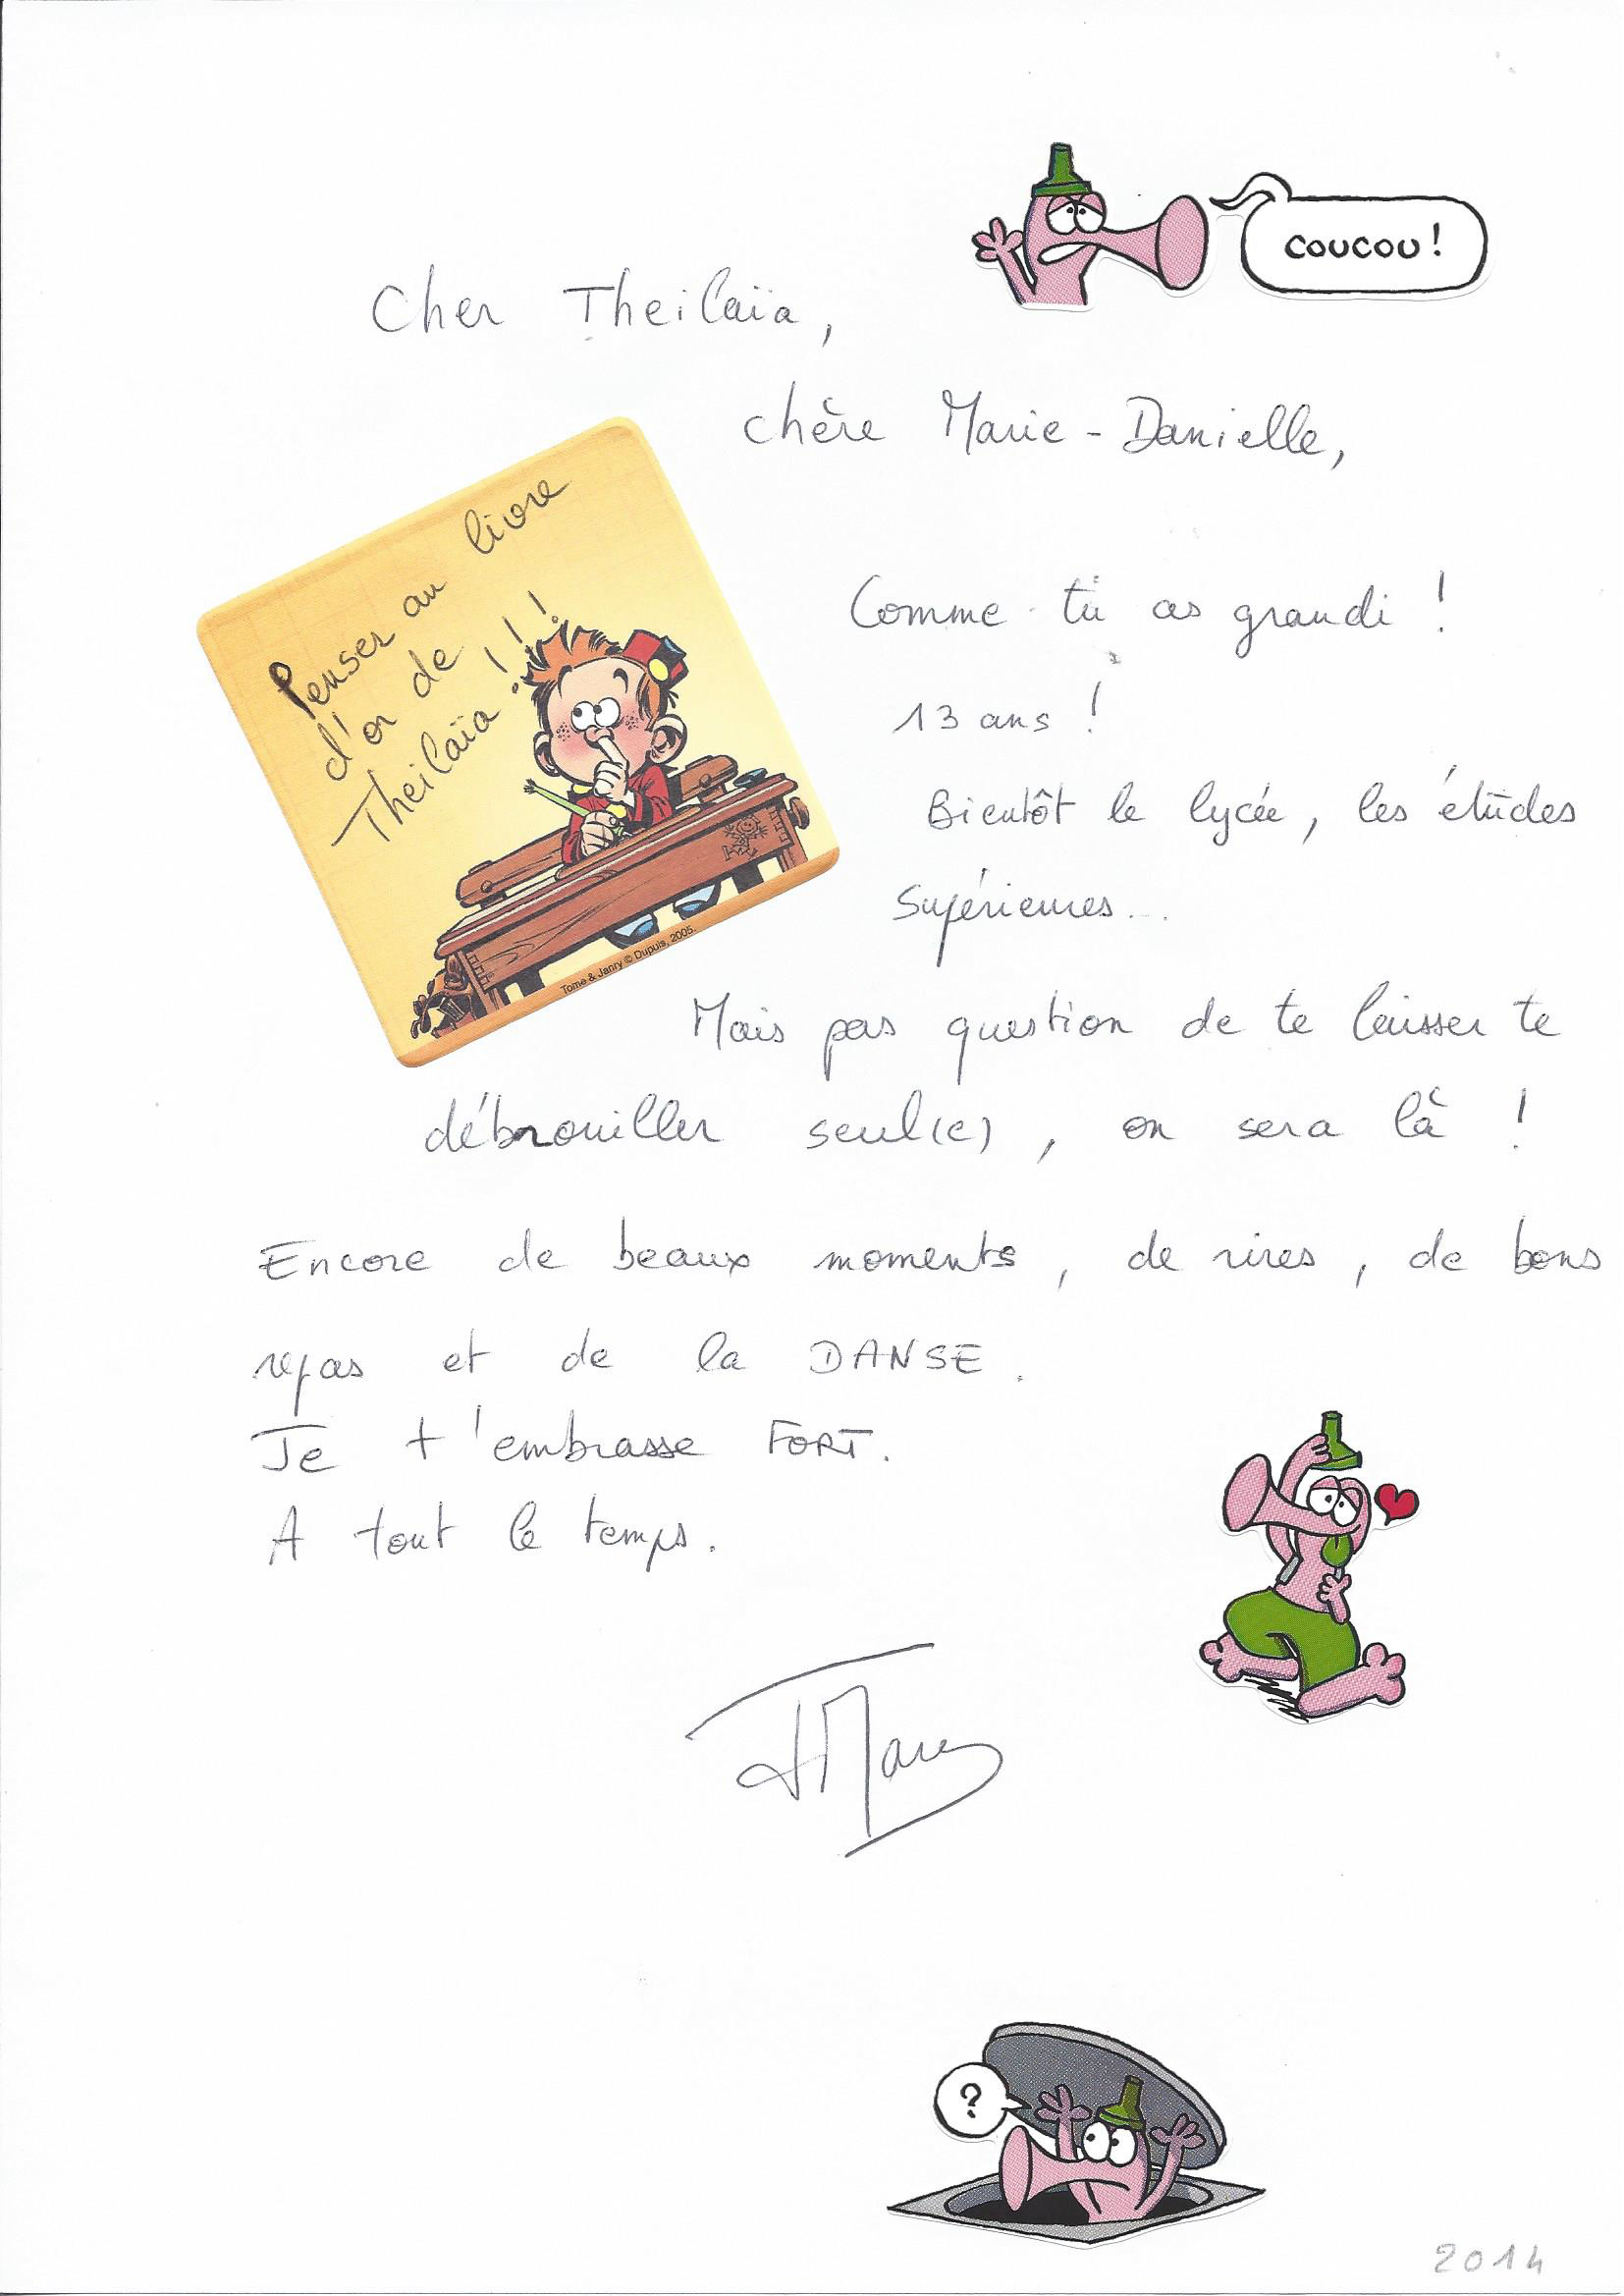 COUCOU !
Cher Theilaïa,
chère Marie-Danielle,
Penser au livre
d'or de
Theilaïa !!!
Tome & Janry © Dupuis, 2005.
Comme tu as grandi !
13 ans !
Bientôt le lycée, les études
supérieures...
Mais pas question de te laisser te
débrouiller seul(e), on sera là !
Encore de beaux moments, de rires, de bons
repas et de la DANSE.
Je t'embrasse FORT.
A tout le temps.
?
2014